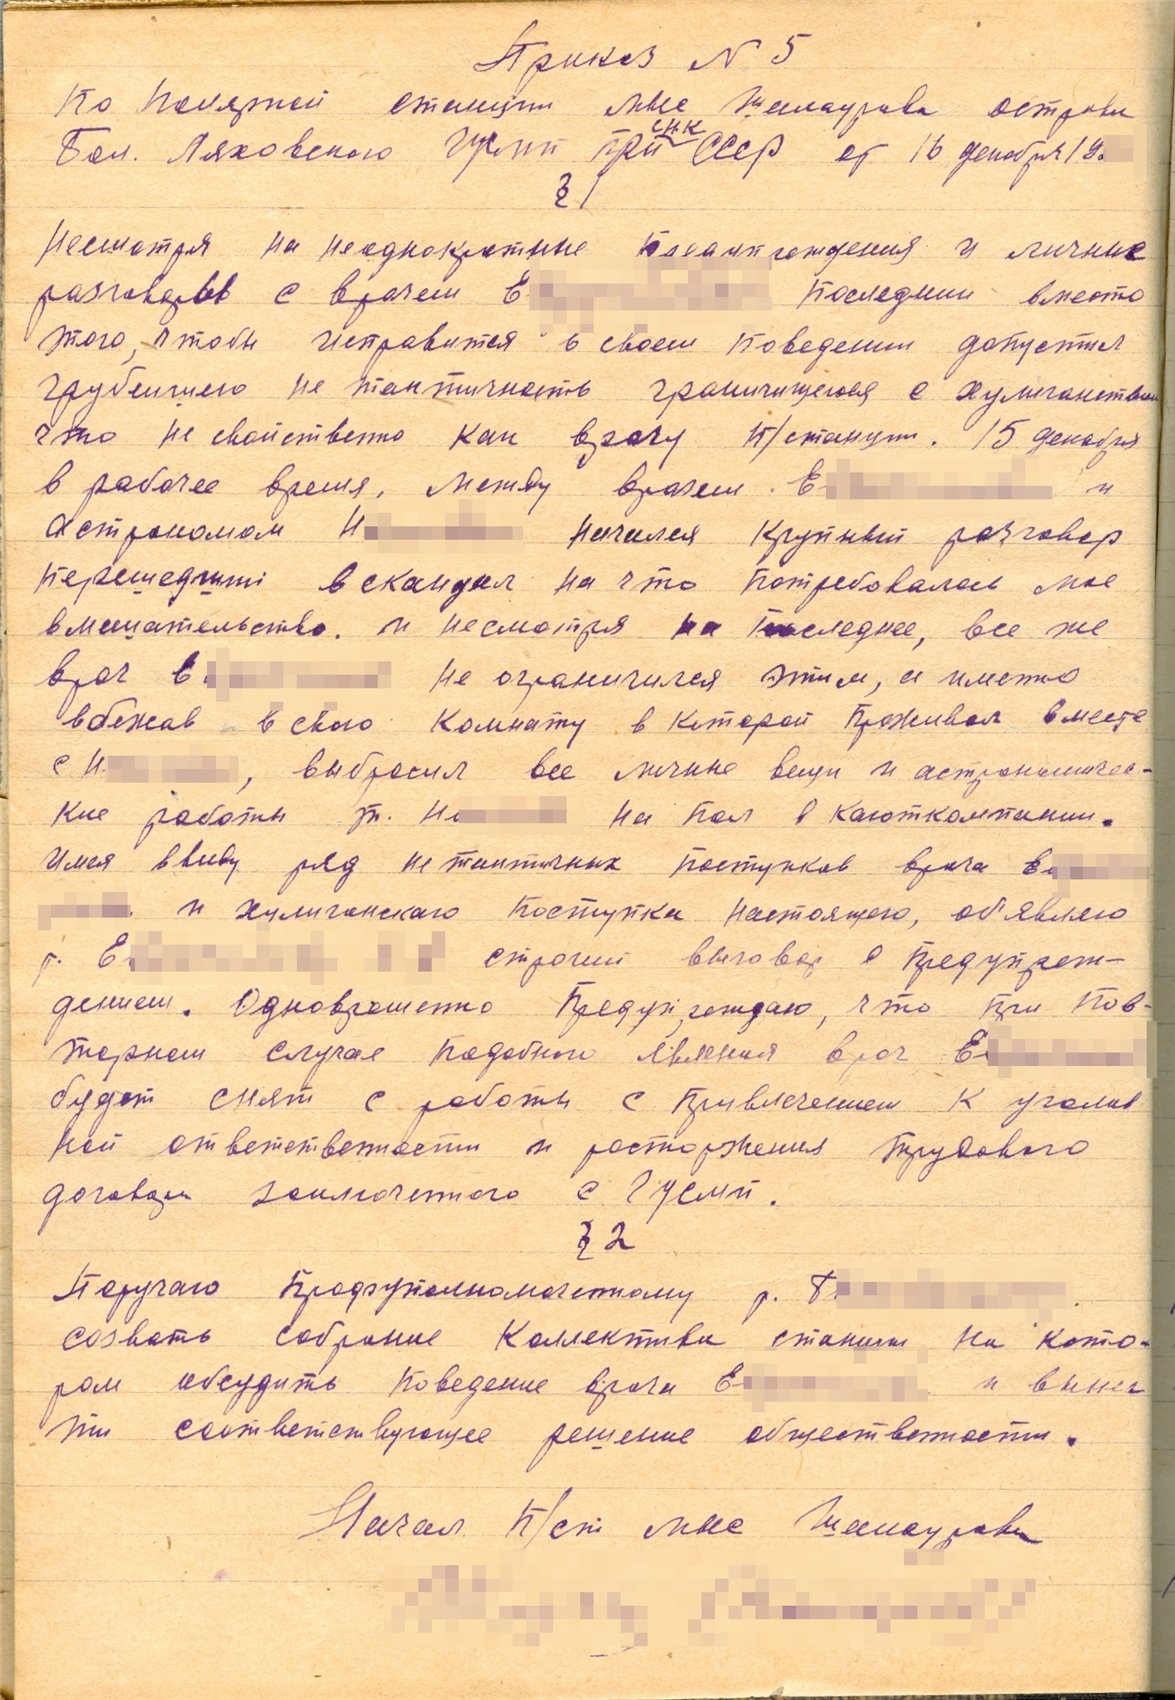 Приказ № 5
По Полярной станции мыс Шалаурова острова
Бол. Ляховского ГУСМП при СНК СССР от 16 декабря 19
§ 1
Несмотря на неоднократные предупреждения и личные
разговоры с врачем Е последний вместо
того, чтобы исправится в своем поведении допустил
грубейшего не тактичность граничищегося с хулиганством
что не свойственно как врачу п/станции. 15 декабря
в рабочее время, между врачем Е и
астрономом Н начался крупный разговор
перешедший в скандал на что потребовалось мое
вмешательство. и несмотря на последнее, все же
врач Е не ограничился этим, а именно
вбежав в свою комнату в которой проживал вместе
с Н, выбросил все личные вещи и астрономичес-
кие работы т. Но на пол в каюткомпании.
Имея ввиду ряд не тактичных поступков врача Е
и хулиганского поступка настоящего, об'являю
т. Е строгий выговор с предупреж-
дением. Одновременно предупреждаю, что при пов-
торном случае подобного явления врач Е
будет снят с работы с привлечением к уголов
ной ответственности и расторжения трудового
договора заключенного с ГУСМП.
§ 2
Поручаю профуполномоченному т.
созвать собрание коллектива станции на кото-
ром обсудить поведение врача Е и вынес
ти соответствующее решение общественности.
Начал. п/ст мыс Шалаурова